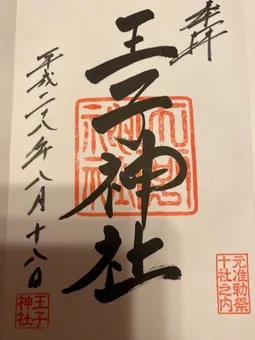 奉拝
王子神社
平成二八年八月十八日
元准勅祭
十社之内
王子
神社